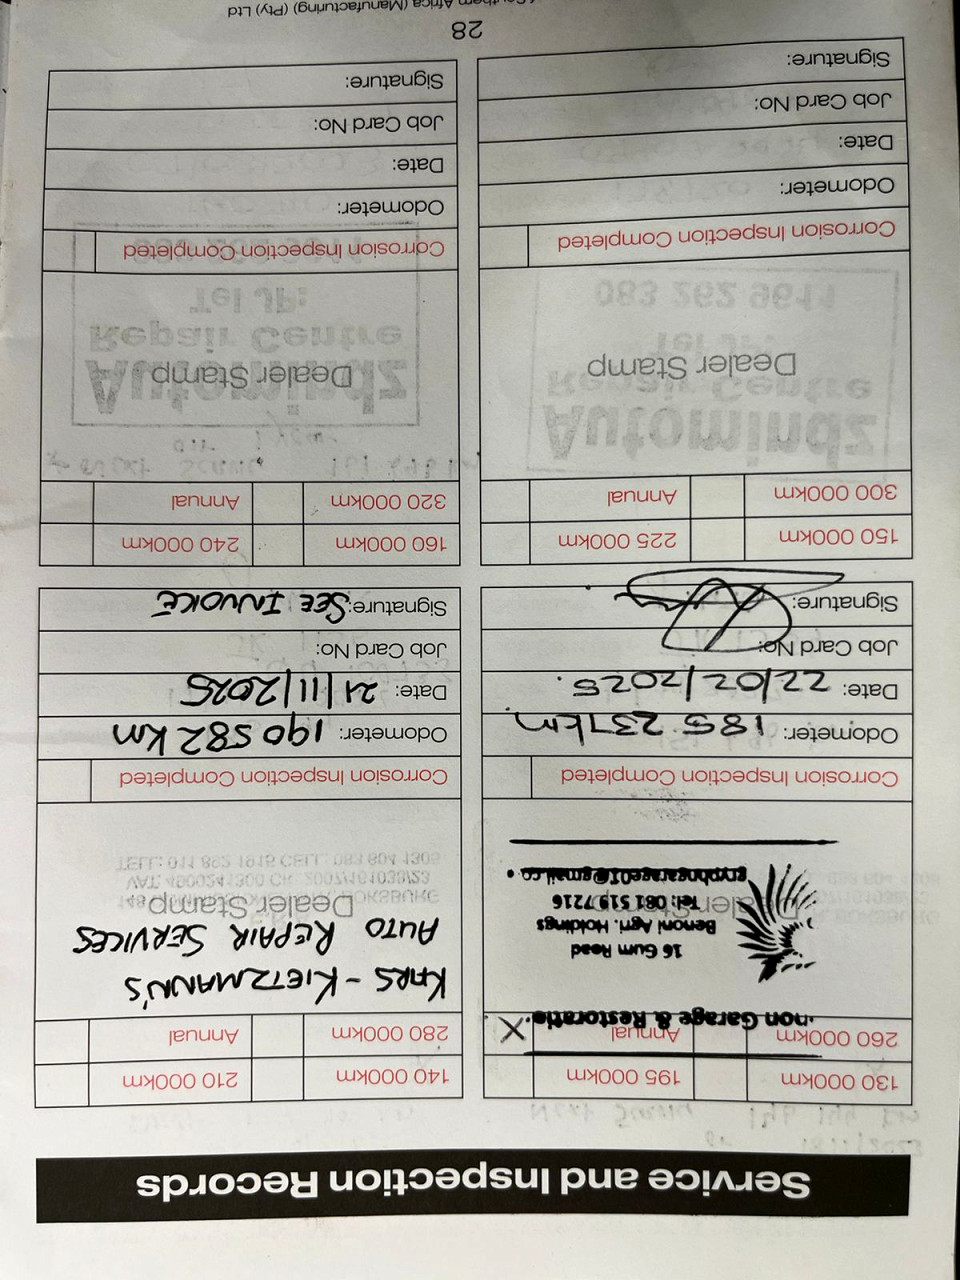 Service and Inspection Records
130 000km 195 000km
260 000km Annual X
non Garage & Restoratio
16 Gum Road
Benoni Agri. Holdings
Dealer Stamp
Tel: 081 515 7216
gryphngarage01@gmail.co
Corrosion Inspection Completed
Odometer: 185 237km
Date: 22/02/2025.
Job Card No:
Signature:
140 000km 210 000km
280 000km Annual
KARS - KIETZMANN'S
AUTO REPAIR SERVICES
Dealer Stamp
Corrosion Inspection Completed
Odometer: 190582 KM
Date: 21/11/2025
Job Card No:
Signature: SEE INVOICE
150 000km 225 000km
300 000km Annual
Dealer Stamp
Corrosion Inspection Completed
Odometer:
Date:
Job Card No:
Signature:
160 000km 240 000km
320 000km Annual
Dealer Stamp
Corrosion Inspection Completed
Odometer:
Date:
Job Card No:
Signature:
28
Africa (Manufacturing) (Pty) Ltd